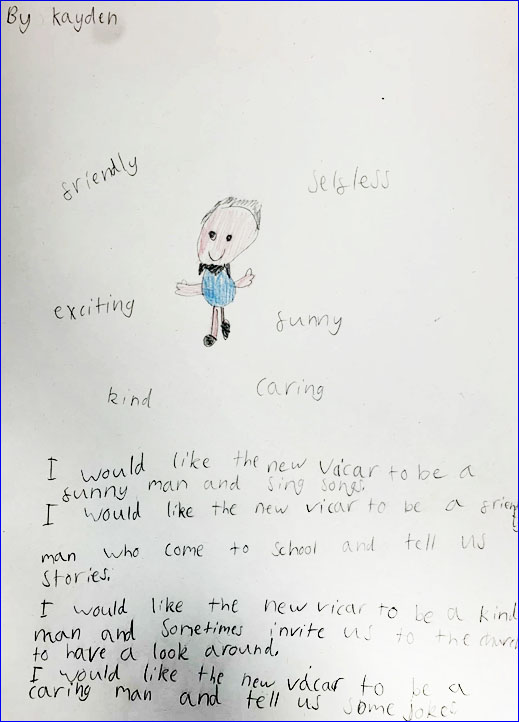 By kayden
friendly
selfless
exciting
funny
kind
caring
I would like the new vacar to be a
funny man and sing songs.
I would like the new vicar to be a friendly
man who come to school and tell us
stories.
I would like the new vicar to be a kind
man and sometimes invite us to the church
to have a look around.
I would like the new vacar to be a
caring man and tell us some jokes